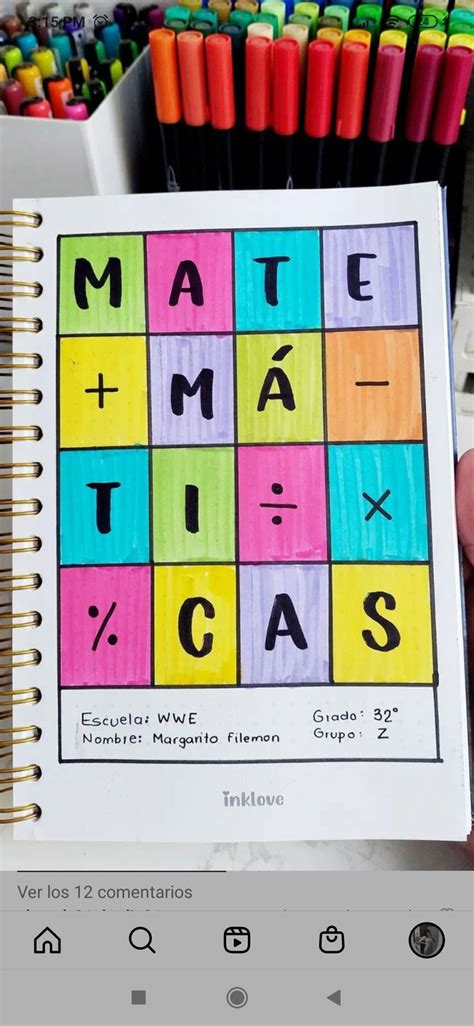 8:15 PM
24
M A T E
+ M Á −
T I ÷ ×
% C A S
Escuela: WWE
Nombre: Margarito Filemon
Grado: 32°
Grupo: Z
inklove
Ver los 12 comentarios